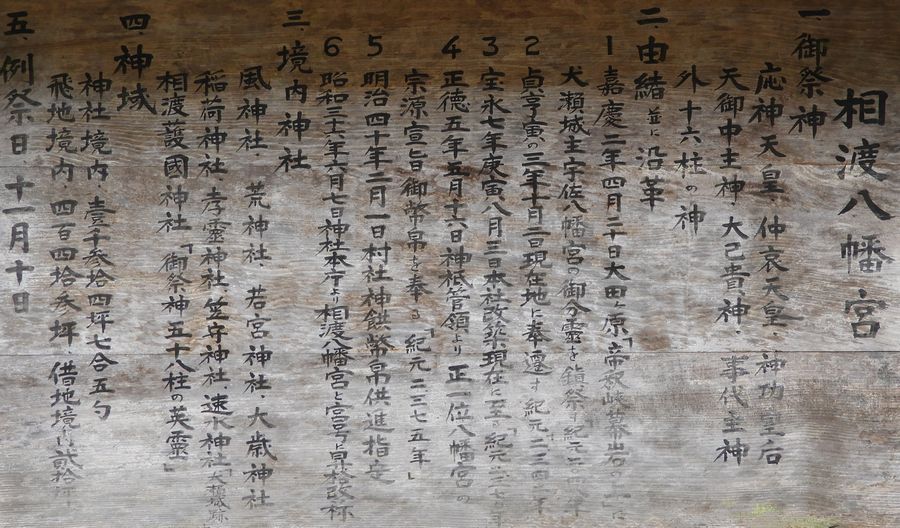 相渡八幡宮
一 御祭神
応神天皇、仲哀天皇、神功皇后
天御中主神 大己貴神、事代主神
外十六柱の神
二 由緒並に沿革
1 嘉慶二年四月二十日大田ヶ原「帝釈峡
犬瀬城主宇佐八幡宮の御分霊を鎮祭「紀元二
2 貞享寅の三年十月三日現在地に奉遷す 紀元二三四 年
3 宝永七年庚寅八月三日本社改築現在に至る「紀元二三七
4 正徳五年五月十六日神祗管領より正一位八幡宮の
宗源宣旨御幣帛を奉る「紀元二三七五年」
5 明治四十年二月一日村社神饌幣帛供進指定
6 昭和三十六年六月七日神社本庁より相渡八幡宮と宮号昇格改称
三、境内神社
風神社、荒神社、若宮神社、大歳神社
稲荷神社、孝霊神社、笠守神社、速水神社
相渡護國神社「御祭神五十八柱の英霊」
四、神域
神社境内、壹千参拾四坪七合五勺
飛地境内、四百四拾参坪 借地境内 弐拾坪
五、例祭日 十一月十日